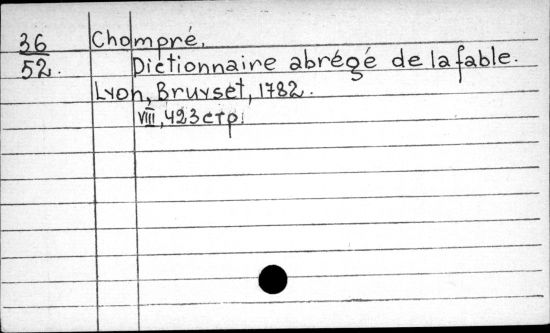 36
52.
Chompré.
Dictionnaire abrégé de la fable.
Lyon, Bruyset, 1782.
VIII, 423 стр.